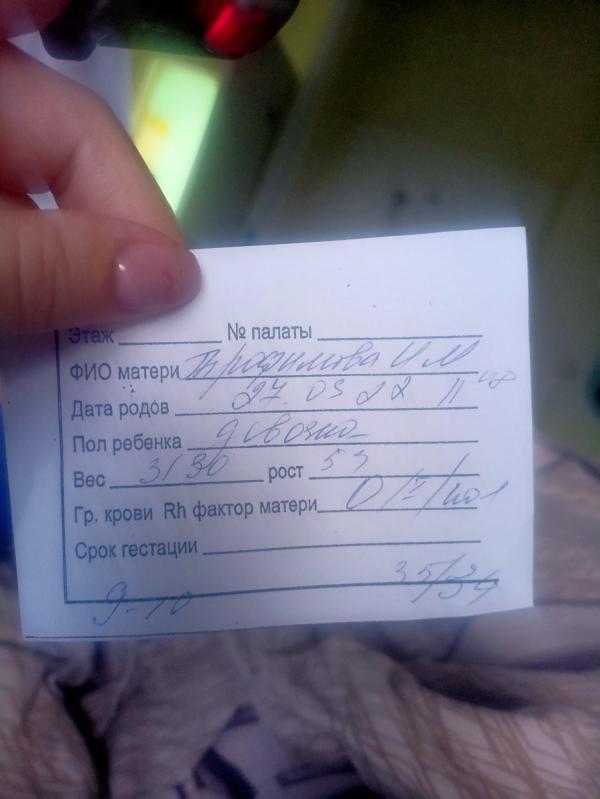 Этаж № палаты
ФИО матери Трофимова И М
Дата родов 27.03 22 11
Пол ребенка девочка
Вес 3130 рост 53
Гр. крови Rh фактор матери O/I/пол
Срок гестации
35/34
9-10